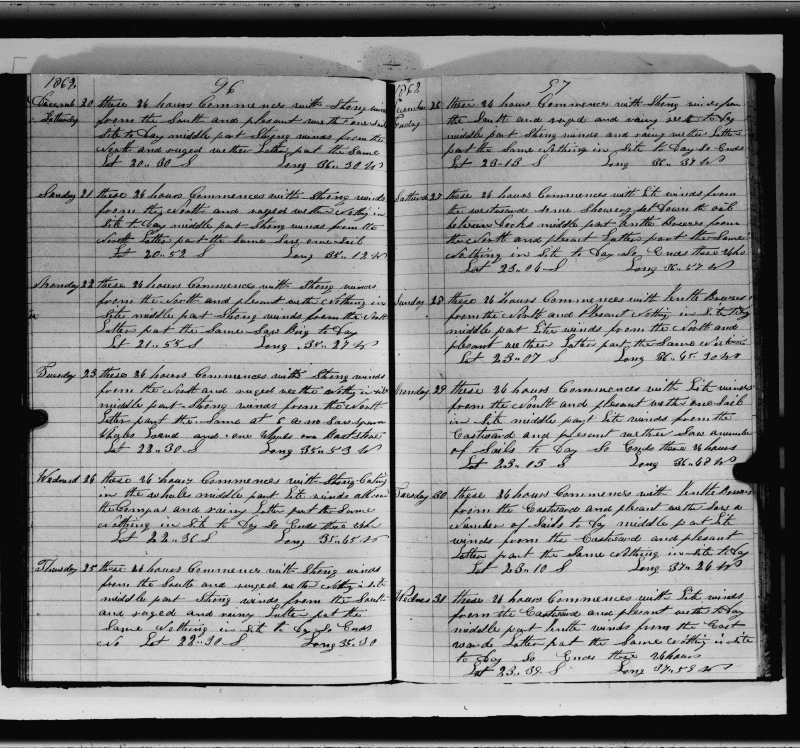 1862
96
Decemb 20 these 24 hours Commences with Strong winds
Satturday from the South and pleasant wether one Sail
Site to Day middle part Strong winds from the
North and ruged wether Latter part the Same
Lat 20..30 S Long 36..30 W
Sunday 21 these 24 hours Commences with Strong winds
from the North and ruged wether Nothing in
Site to Day middle part Strong winds from the
North Latter part the Same Saw one Sail
Lat 20..52 S Long 35..12 W
Monday 22 these 24 hours Commences with Strong winds
from the North and pleasant wether Nothing in
Site middle part Strong winds from the North
Latter part the Same Saw Brig to Day
Lat 21..55 S Long 35..27 W
Tuesday 23 these 24 hours Commences with Strong winds
from the North and ruged wether Nothing in site
middle part Strong winds from the North
Latter part the Same at 6 a m Saw sparm
Whales Loard and one Whale
Lat 22..30 S Long 35..53 W
Wednesd 24 these 24 hours Commences with Strong
in the whales middle part Lite winds all
the Compas and rainy Latter part the Same
Nothing in Site to Day So Ends these 24h
Lat 22..36 S Long 35..45 W
Thursday 25 these 24 hours Commences with Strong winds
from the South and ruged wether Nothing in site
middle part Strong winds from the South
and ruged and rainy Latter part the
Same Nothing in Site to Day So Ends
No Lat 22..30 S Long 35..30
1862
97
December 26 these 24 hours Commences with Strong winds from
Friday the South and ruged and rainy wether to Day
middle part Strong winds and rainy wether Latter
part the Same Nothing in Site to Day So Ends
Lat 23-13 S Long 36..37 W
Satturd 27 these 24 hours Commences with Lite winds from
the westwards Some Showing Set Down the oil
between Decks middle part Gentle Breezes from
the North and plesant Latter part the Same
Nothing in Site to Day So Ends these 24ho
Lat 23..04 S Long 36..57 W
Sunday 28 these 24 hours Commences with Gentle Breezes
from the North and Pleasant Nothing in Site to Day
middle part Lite winds from the North and
plesant wether Latter part the Same
Lat 23..07 S Long 36..45..30 W
Monday 29 these 24 hours Commences with Lite winds
from the North and plesant wether one Sail
in Site middle part Lite winds from the
Eastward and plesant wether Saw a number
of Sails to Day So Ends these 24 hours
Lat 23..03 S Long 36..48 W
Tuesday 30 these 24 hours Commences with Gentle Breezes
from the Eastward and plesant wether Saw a
Number of Sails to Day middle part Lite
winds from the Eastward and plesant
Latter part the Same Nothing in Site to Day
Lat 23..10 S Long 37..26 W
Wednes 31 these 24 hours Commences with Lite winds
from the Eastward and plesant wether to Day
middle part Gentle winds from the East
wards Latter part the Same Nothing in Site
to Day So Ends these 24 hours
Lat 23..39 S Long 37..59 W